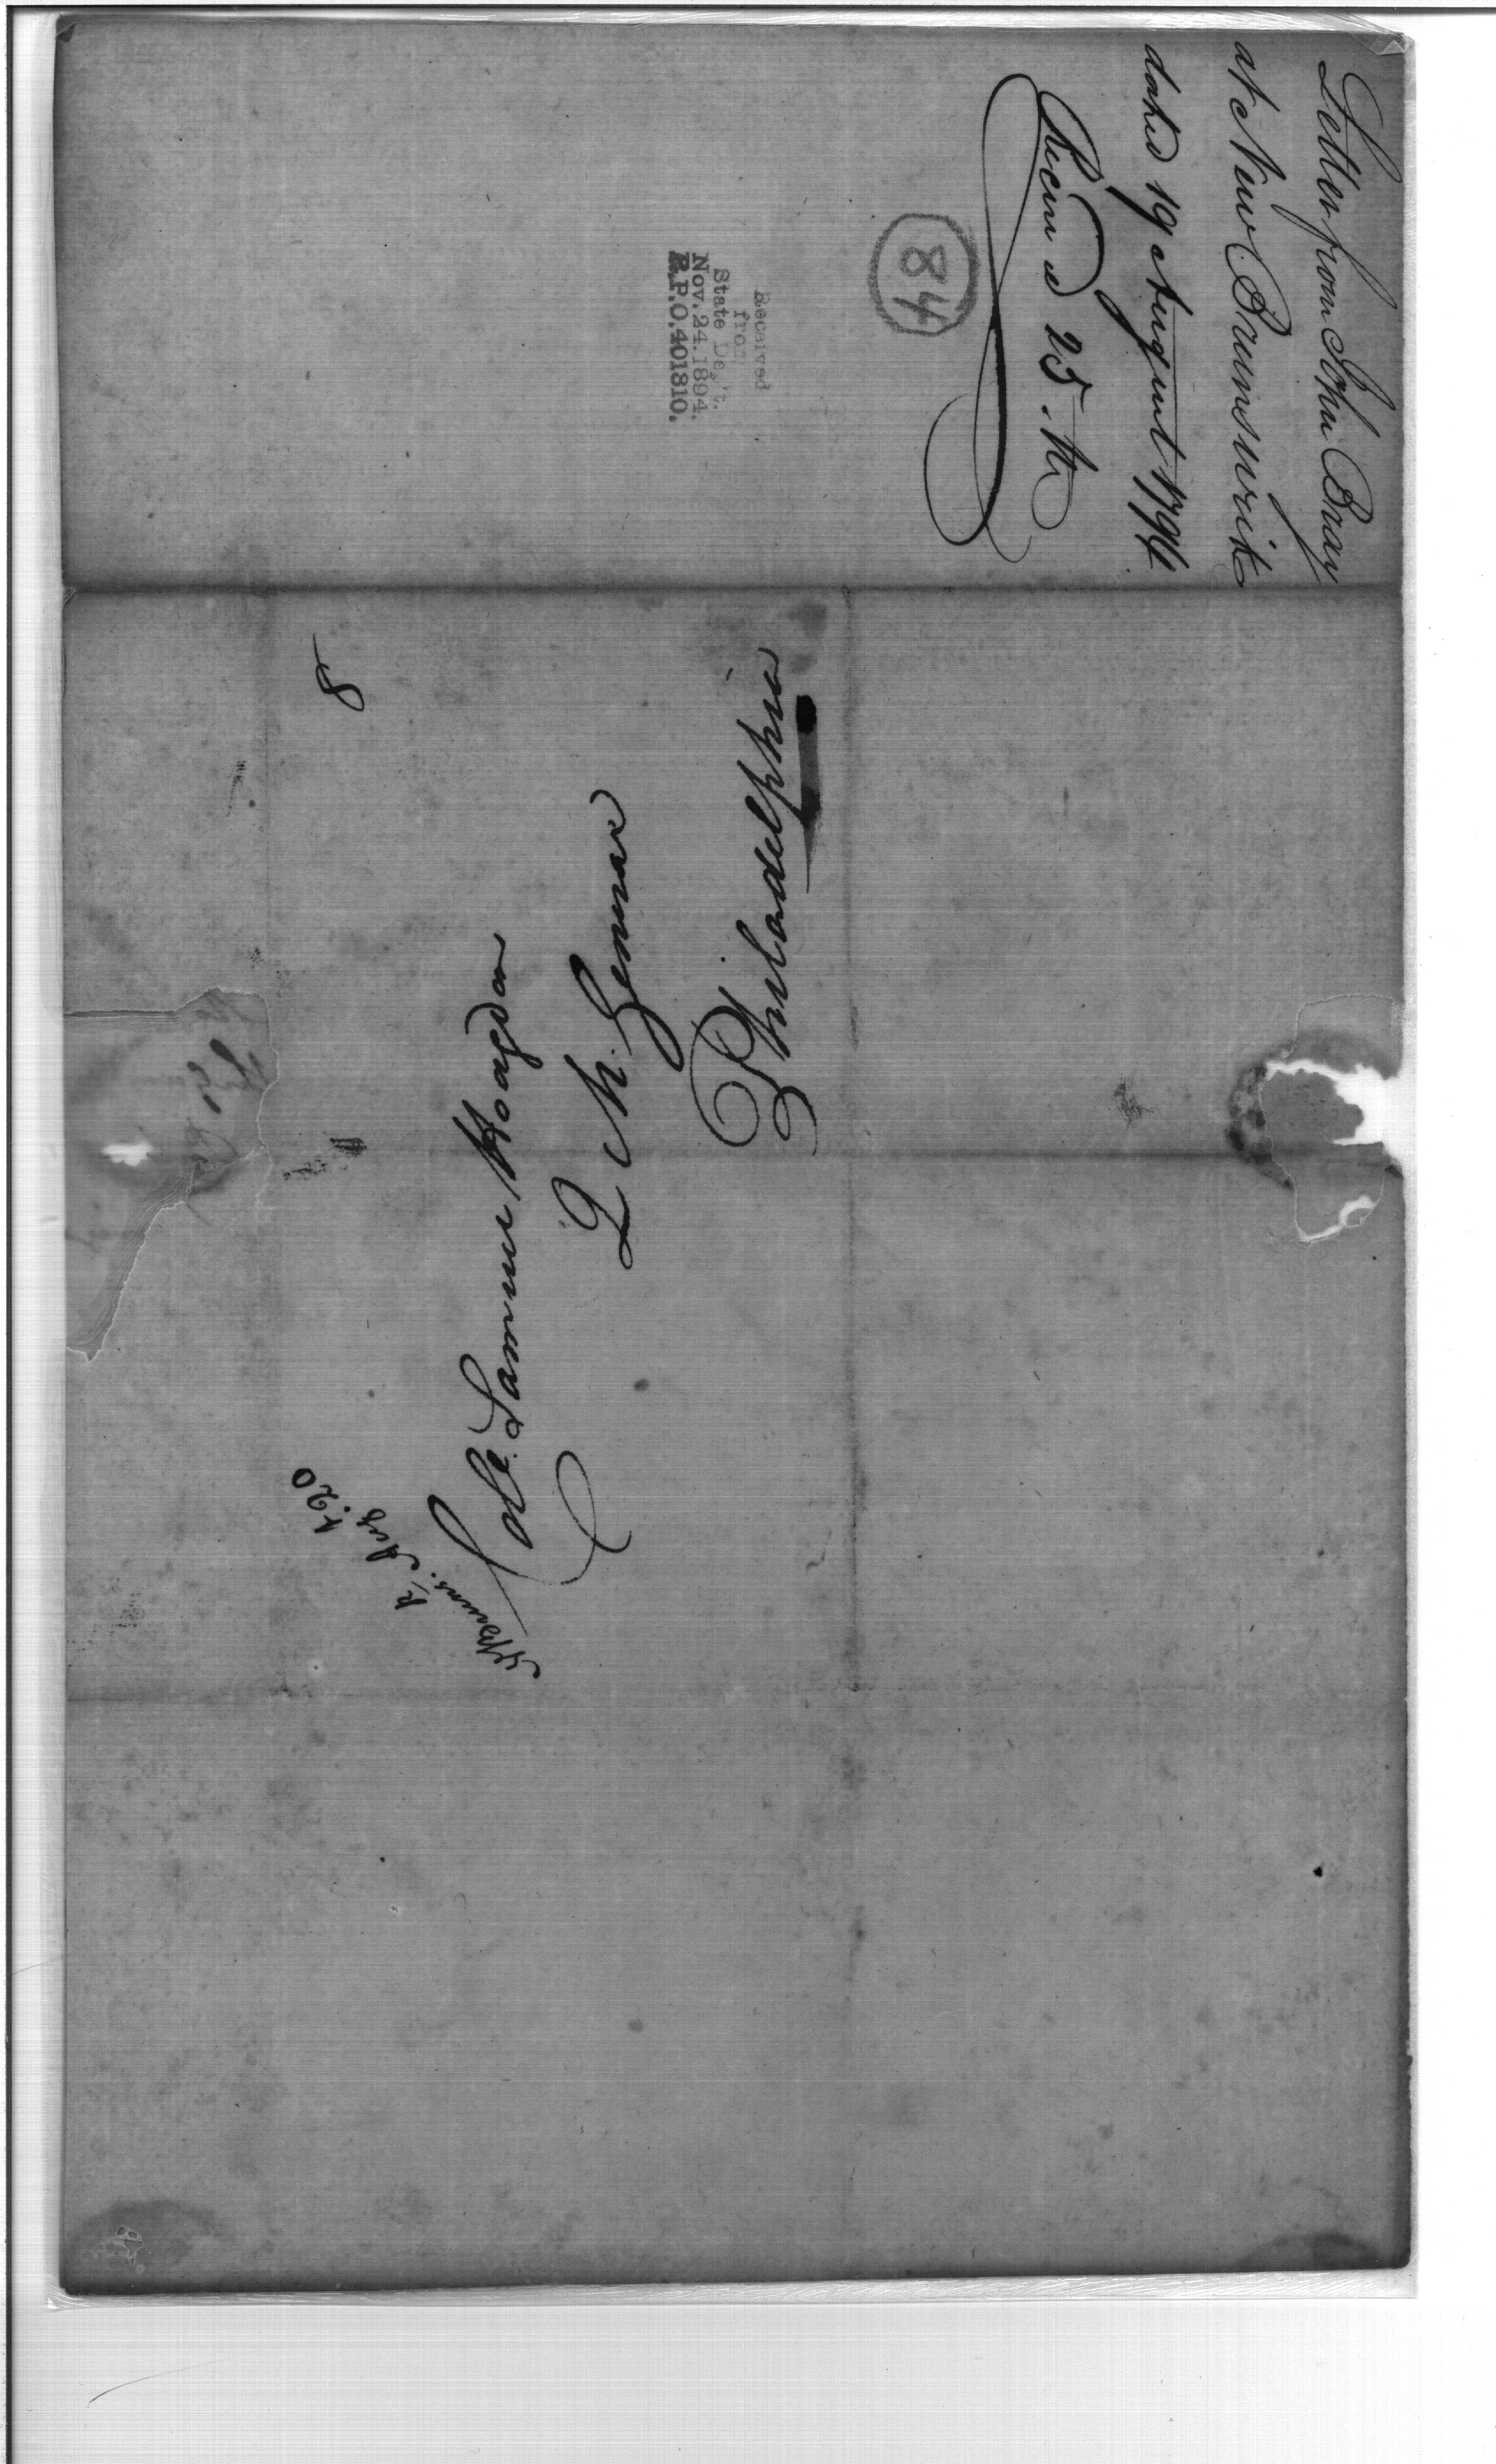 Letter from John Bray
at New Brunswick
dated 19 August 1794
Receiv d 25.th
84
Received
from
State Dep't.
Nov. 24. 1894.
R.P.O. 401810.
8
N. Brunsk.
Aug. 20
Col. Samuel Hodgdon
Q M. General
Philadelphia